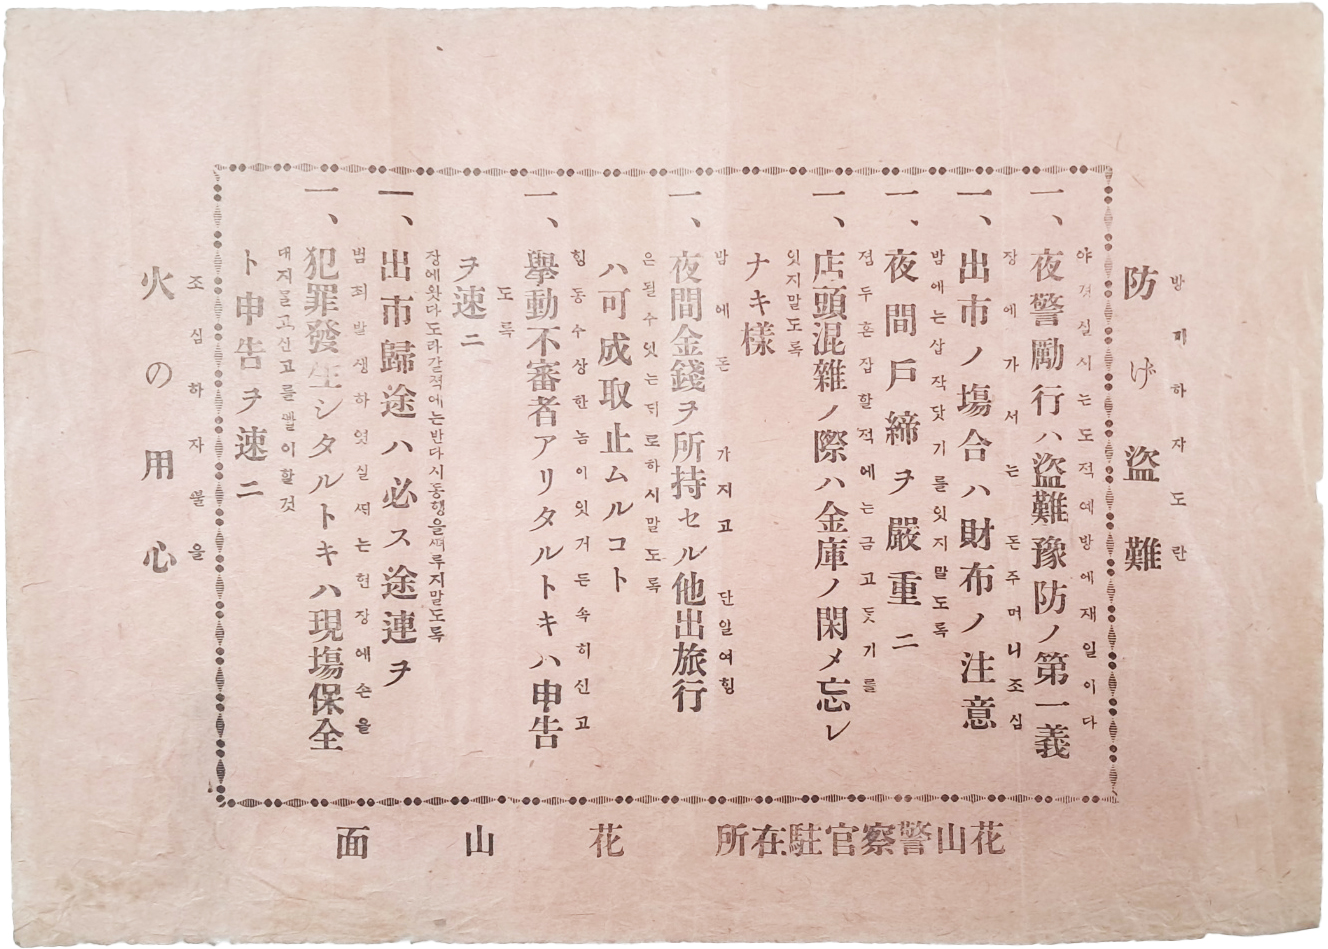 방끼하자도란
防げ盗難
야경실시는도적예방에재일이다
一、夜警勵行ハ盗難豫防ノ第一義
장에가서는돈주머니조심
一、出市ノ場合ハ財布ノ注意
밤에는삽작닷기를잇지말도록
一、夜間戸締ヲ嚴重ニ
졈두혼잡할적에는금고돗기를
一、店頭混雜ノ際ハ金庫ノ閑メ忘レ
잇지말도록
ナキ樣
밤에돈가지고단일여힝
一、夜間金錢ヲ所持セル他出旅行
은될수잇는듸로하시말도록
ハ可成取止ムルコト
힝동수상한놈이잇거든속히신고
一、擧動不審者アリタルトキハ申告
도록
ヲ速ニ
장에왓다도라갈적에는반다시동행을써루지말도록
一、出市歸途ハ必ス途連ヲ
범죄발생하엿실쎄는현장에손을
一、犯罪發生シタルトキハ現場保全
대지말고신고를빨이할것
ト申告ヲ速ニ
조심하자불을
火の用心
花山警察官駐在所
花山面